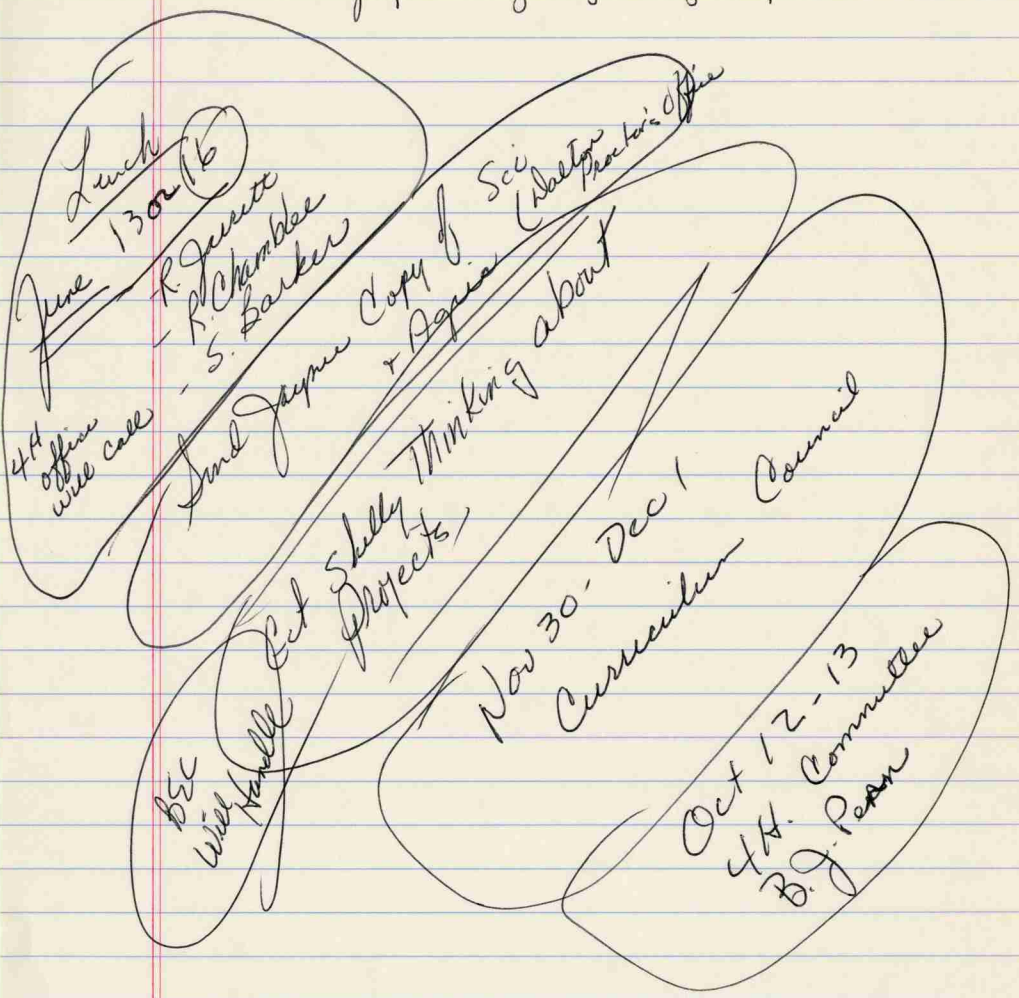 Lunch
June 13 or 16
- R. Jarrett
- R. Chamblee
- S. Barker
4H
office
will call
Send Jaynee Copy of Sci
+ Agria (Walton
Proctor's Office
Get Shelly Thinking about
projects
BEC
will Handle
Nov 30 - Dec 1
Curriculum Council
Oct 12-13
4H. Committee
B.J. Penn